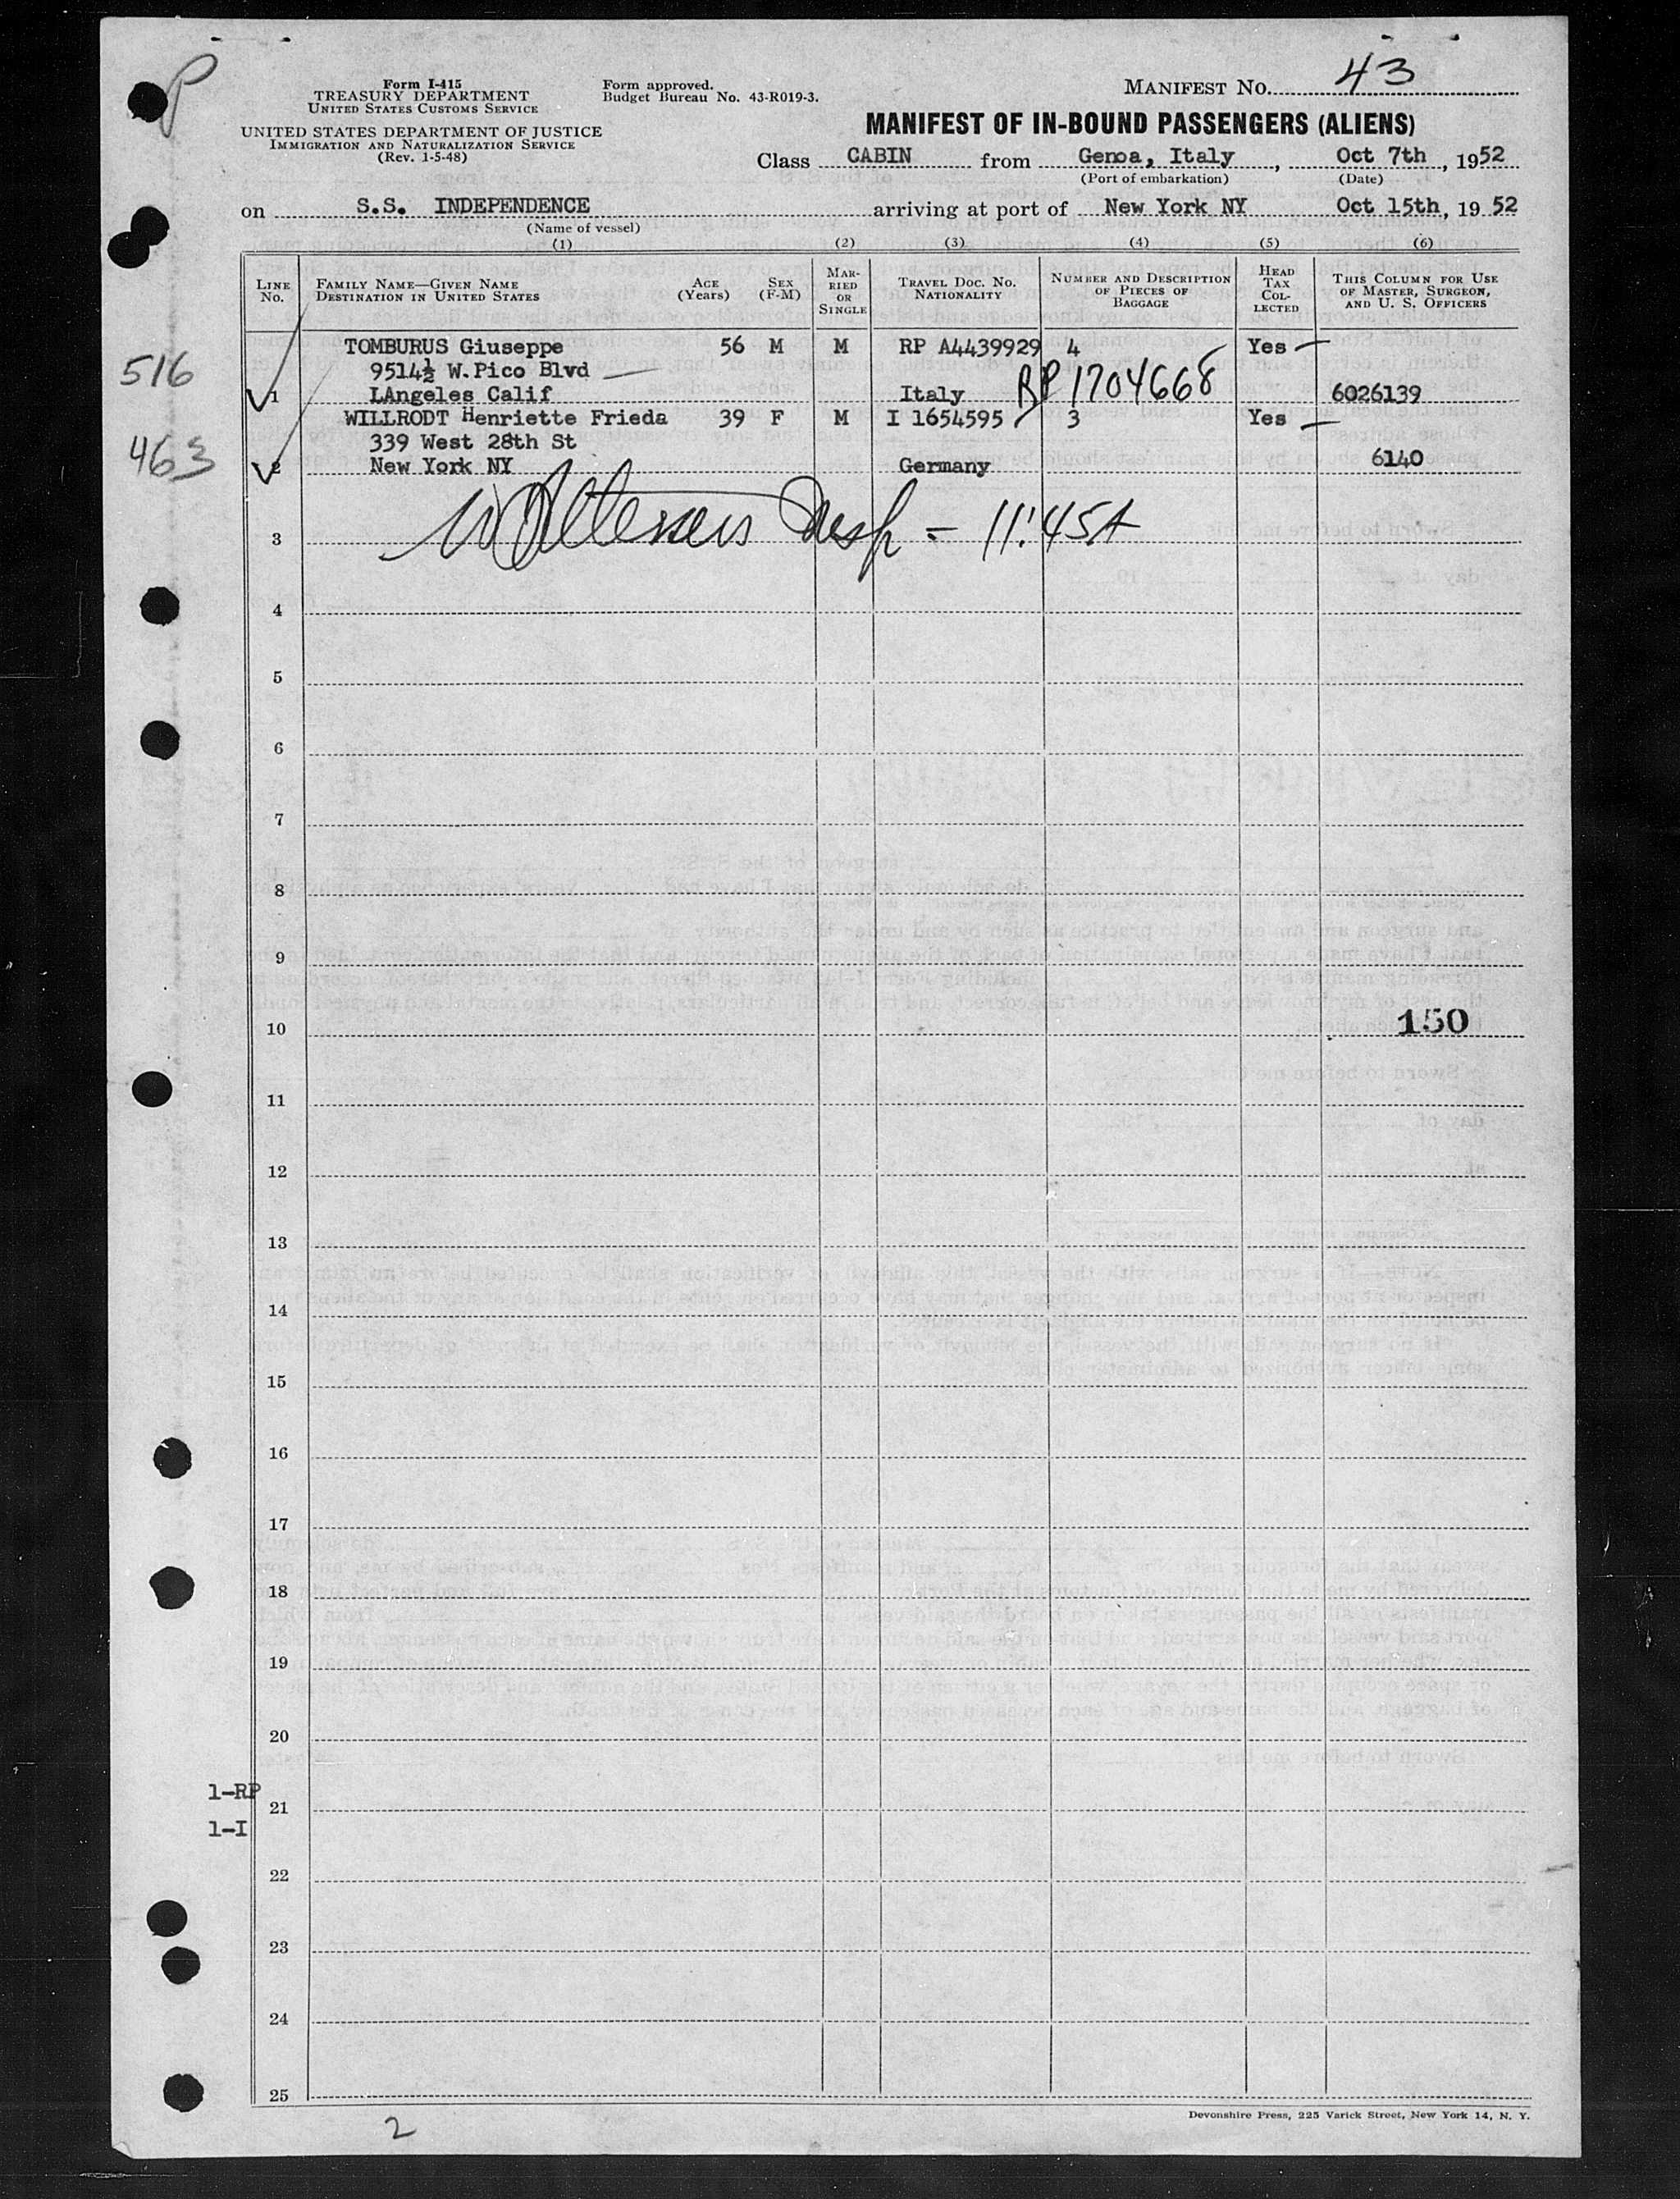 Form I-415
TREASURY DEPARTMENT
UNITED STATES CUSTOMS SERVICE
UNITED STATES DEPARTMENT OF JUSTICE
IMMIGRATION AND NATURALIZATION SERVICE
(Rev. 1-5-48)
Form approved.
Budget Bureau No. 43-R019-3.
MANIFEST NO. 43
MANIFEST OF IN-BOUND PASSENGERS (ALIENS)
Class CABIN from Genoa, Italy, Oct 7th, 1952
(Port of embarkation) (Date)
on S.S. INDEPENDENCE arriving at port of New York NY Oct 15th, 1952
(Name of vessel)
(1) (2) (3) (4) (5) (6)
LINE NO. FAMILY NAME—GIVEN NAME DESTINATION IN UNITED STATES AGE (YEARS) SEX (F-M) MARRIED OR SINGLE TRAVEL DOC. NO. NATIONALITY NUMBER AND DESCRIPTION OF PIECES OF BAGGAGE HEAD TAX COLLECTED THIS COLUMN FOR USE OF MASTER, SURGEON, AND U. S. OFFICERS
TOMBURUS Giuseppe 56 M M RP A4439929 4 Yes
516 9514½ W.Pico Blvd RP 1704668
1 LAngeles Calif Italy 6026139
WILLRODT Henriette Frieda 39 F M I 1654595 3 Yes
463 339 West 28th St
2 New York NY Germany 6140
3 Insp - 11:45A
4
5
6
7
8
9
10 150
11
12
13
14
15
16
17
18
19
20
1-RP
21
1-I
22
23
24
25
Devonshire Press, 225 Varick Street, New York 14, N. Y.
2